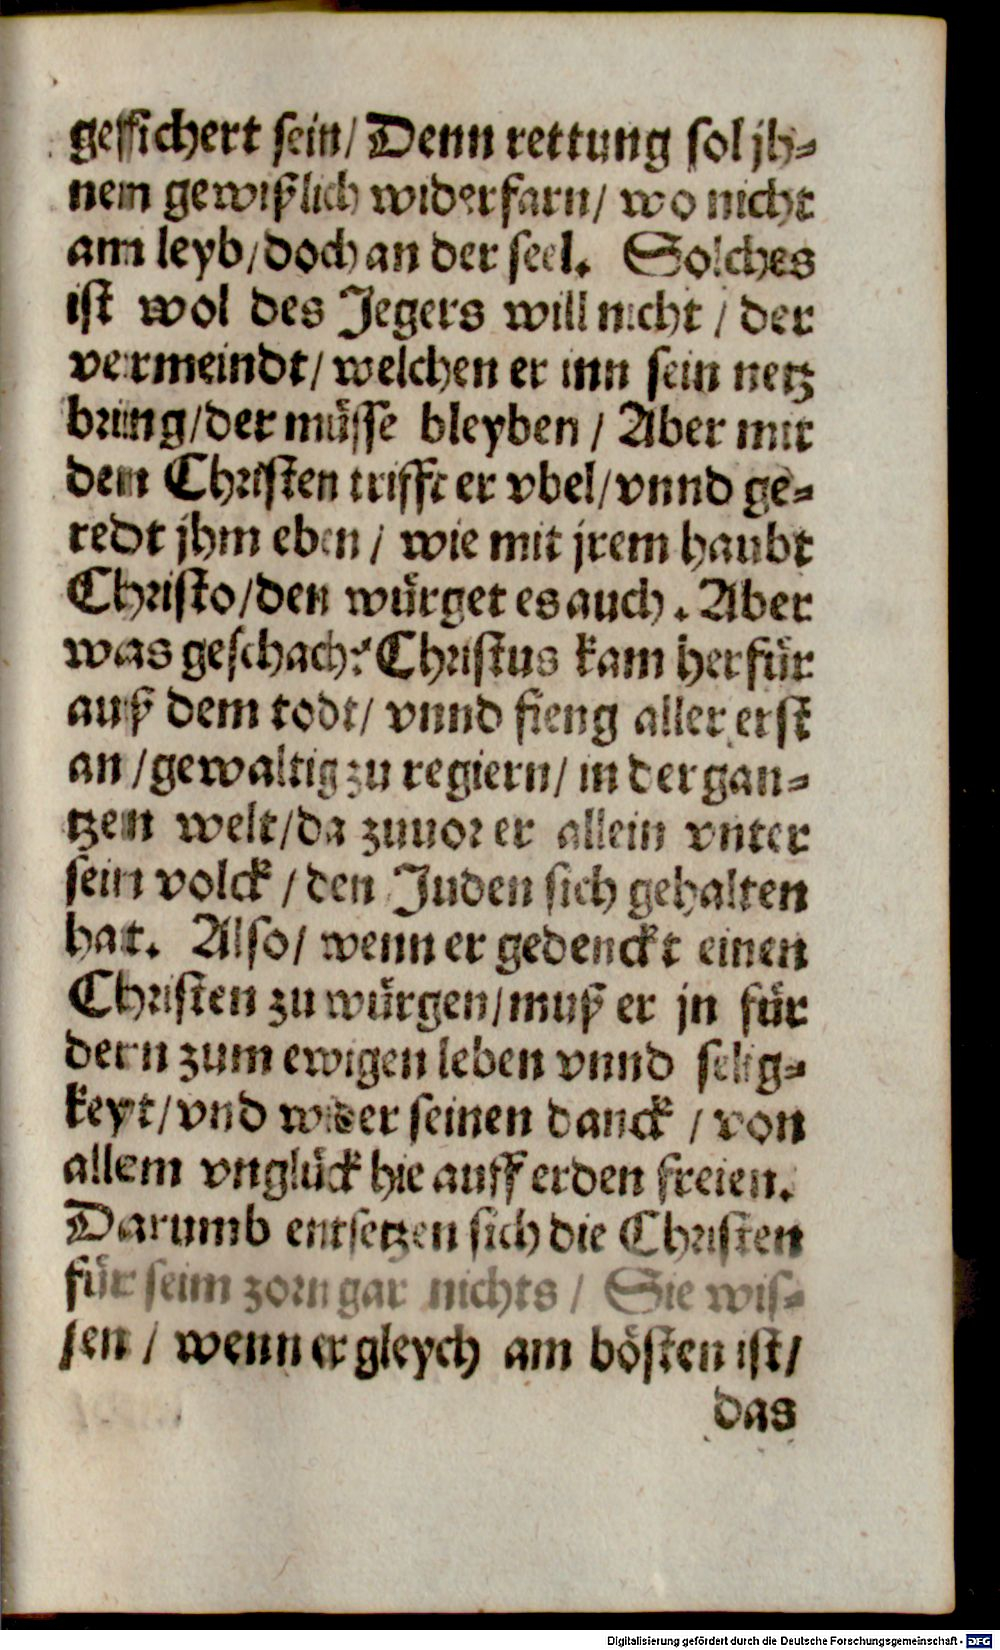 gesſichert sein/ Denn rettung sol jh-
nen gewißlich widerfarn/ wo nicht
am leyb/ doch an der seel. Solches
ist wol des Jegers will nicht / der
vermeindt/ welchen er inn sein netz
bring/ der müsse bleyben / Aber mit
den Christen trifft er vbel/ vnnd ge-
redt jhm eben / wie mit jrem haubt
Christo/ den würget es auch . Aber
was geschach? Christus kam herfür
auß dem todt/ vnnd fieng aller erst
an / gewaltig zu regiern/ in der gan-
tzen welt/ da zuuor er allein vnter
sein volck / den Juden sich gehalten
hat. Also/ wenn er gedenckt einen
Christen zu würgen/ muß er jn für
dern zum ewigen leben vnnd selig-
keyt/ vnd wider seinen danck / von
allem vnglück hie auff erden freien.
Darumb entsetzen sich die Christen
für seim zorn gar nichts / Sie wis-
sen / wenn er gleych am bösten ist/
das
Digitalisierung gefördert durch die Deutsche Forschungsgemeinschaft - DFG